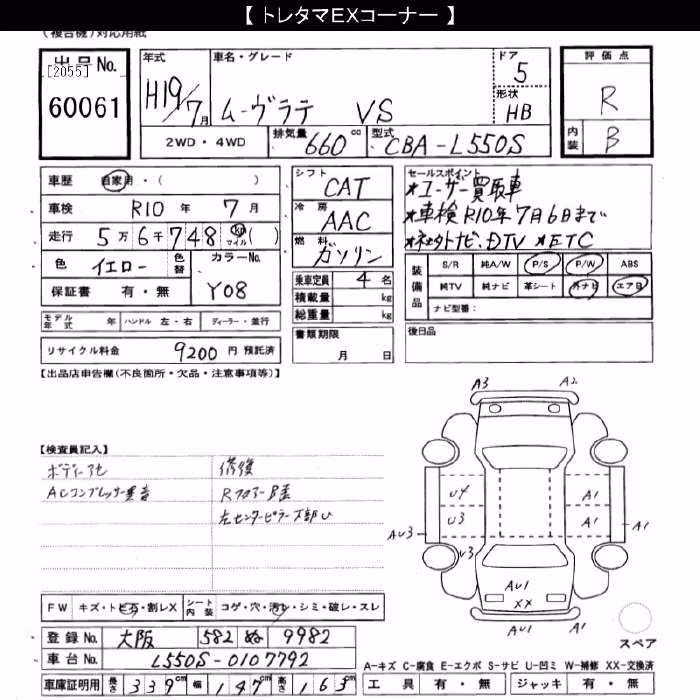 【 トレタマEXコーナー 】
(複合機)対応用紙
出品No.
[2055]
60061
年式 H19/7月
車名・グレード ムーヴラテ VS
ドア 5
形状 HB
2WD・4WD
排気量 660 cc
型式 CBA-L550S
評価点 R
内装 B
車歴 自家用・( )
車検 R10 年 7 月
走行 5万6千748 km マイル ( )
色 イエロー 色替 カラーNo. Y08
保証書 有・無
シフト CAT
冷房 AAC
燃料 ガソリン
乗車定員 4 名
積載量 kg
総重量 kg
書類期限 月 日
セールスポイント
★ユーザー買取車
★車検R10年7月6日まで
★社外ナビ、DTV ★ETC
装備品
S/R 純A/W P/S P/W ABS
純TV 純ナビ 革シート 外ナビ エアB
ナビ型番:
後日品
モデル年式 年 ハンドル 左・右 ディーラー・並行
リサイクル料金 9200 円 預託済
【出品店申告欄(不良箇所・欠品・注意事項等)】
【検査員記入】
ACコンプレッサー異音
修復
左センターピラー下部U
A3 A2
U4 A1
U3 A1
AU3 A1
U3
AU1
XX
FW キズ・トビ石・割レX シート内装 コゲ・穴・汚レ・シミ・破レ・スレ
登録No. 大阪 582 ぬ 9982
車台No. L550S-0107792
車庫証明用 長さ 339cm 幅 147cm 高さ 163cm
スペア
A-キズ C-腐食 E-エクボ S-サビ U-凹ミ W-補修 XX-交換済
工具 有・無 ジャッキ 有・無